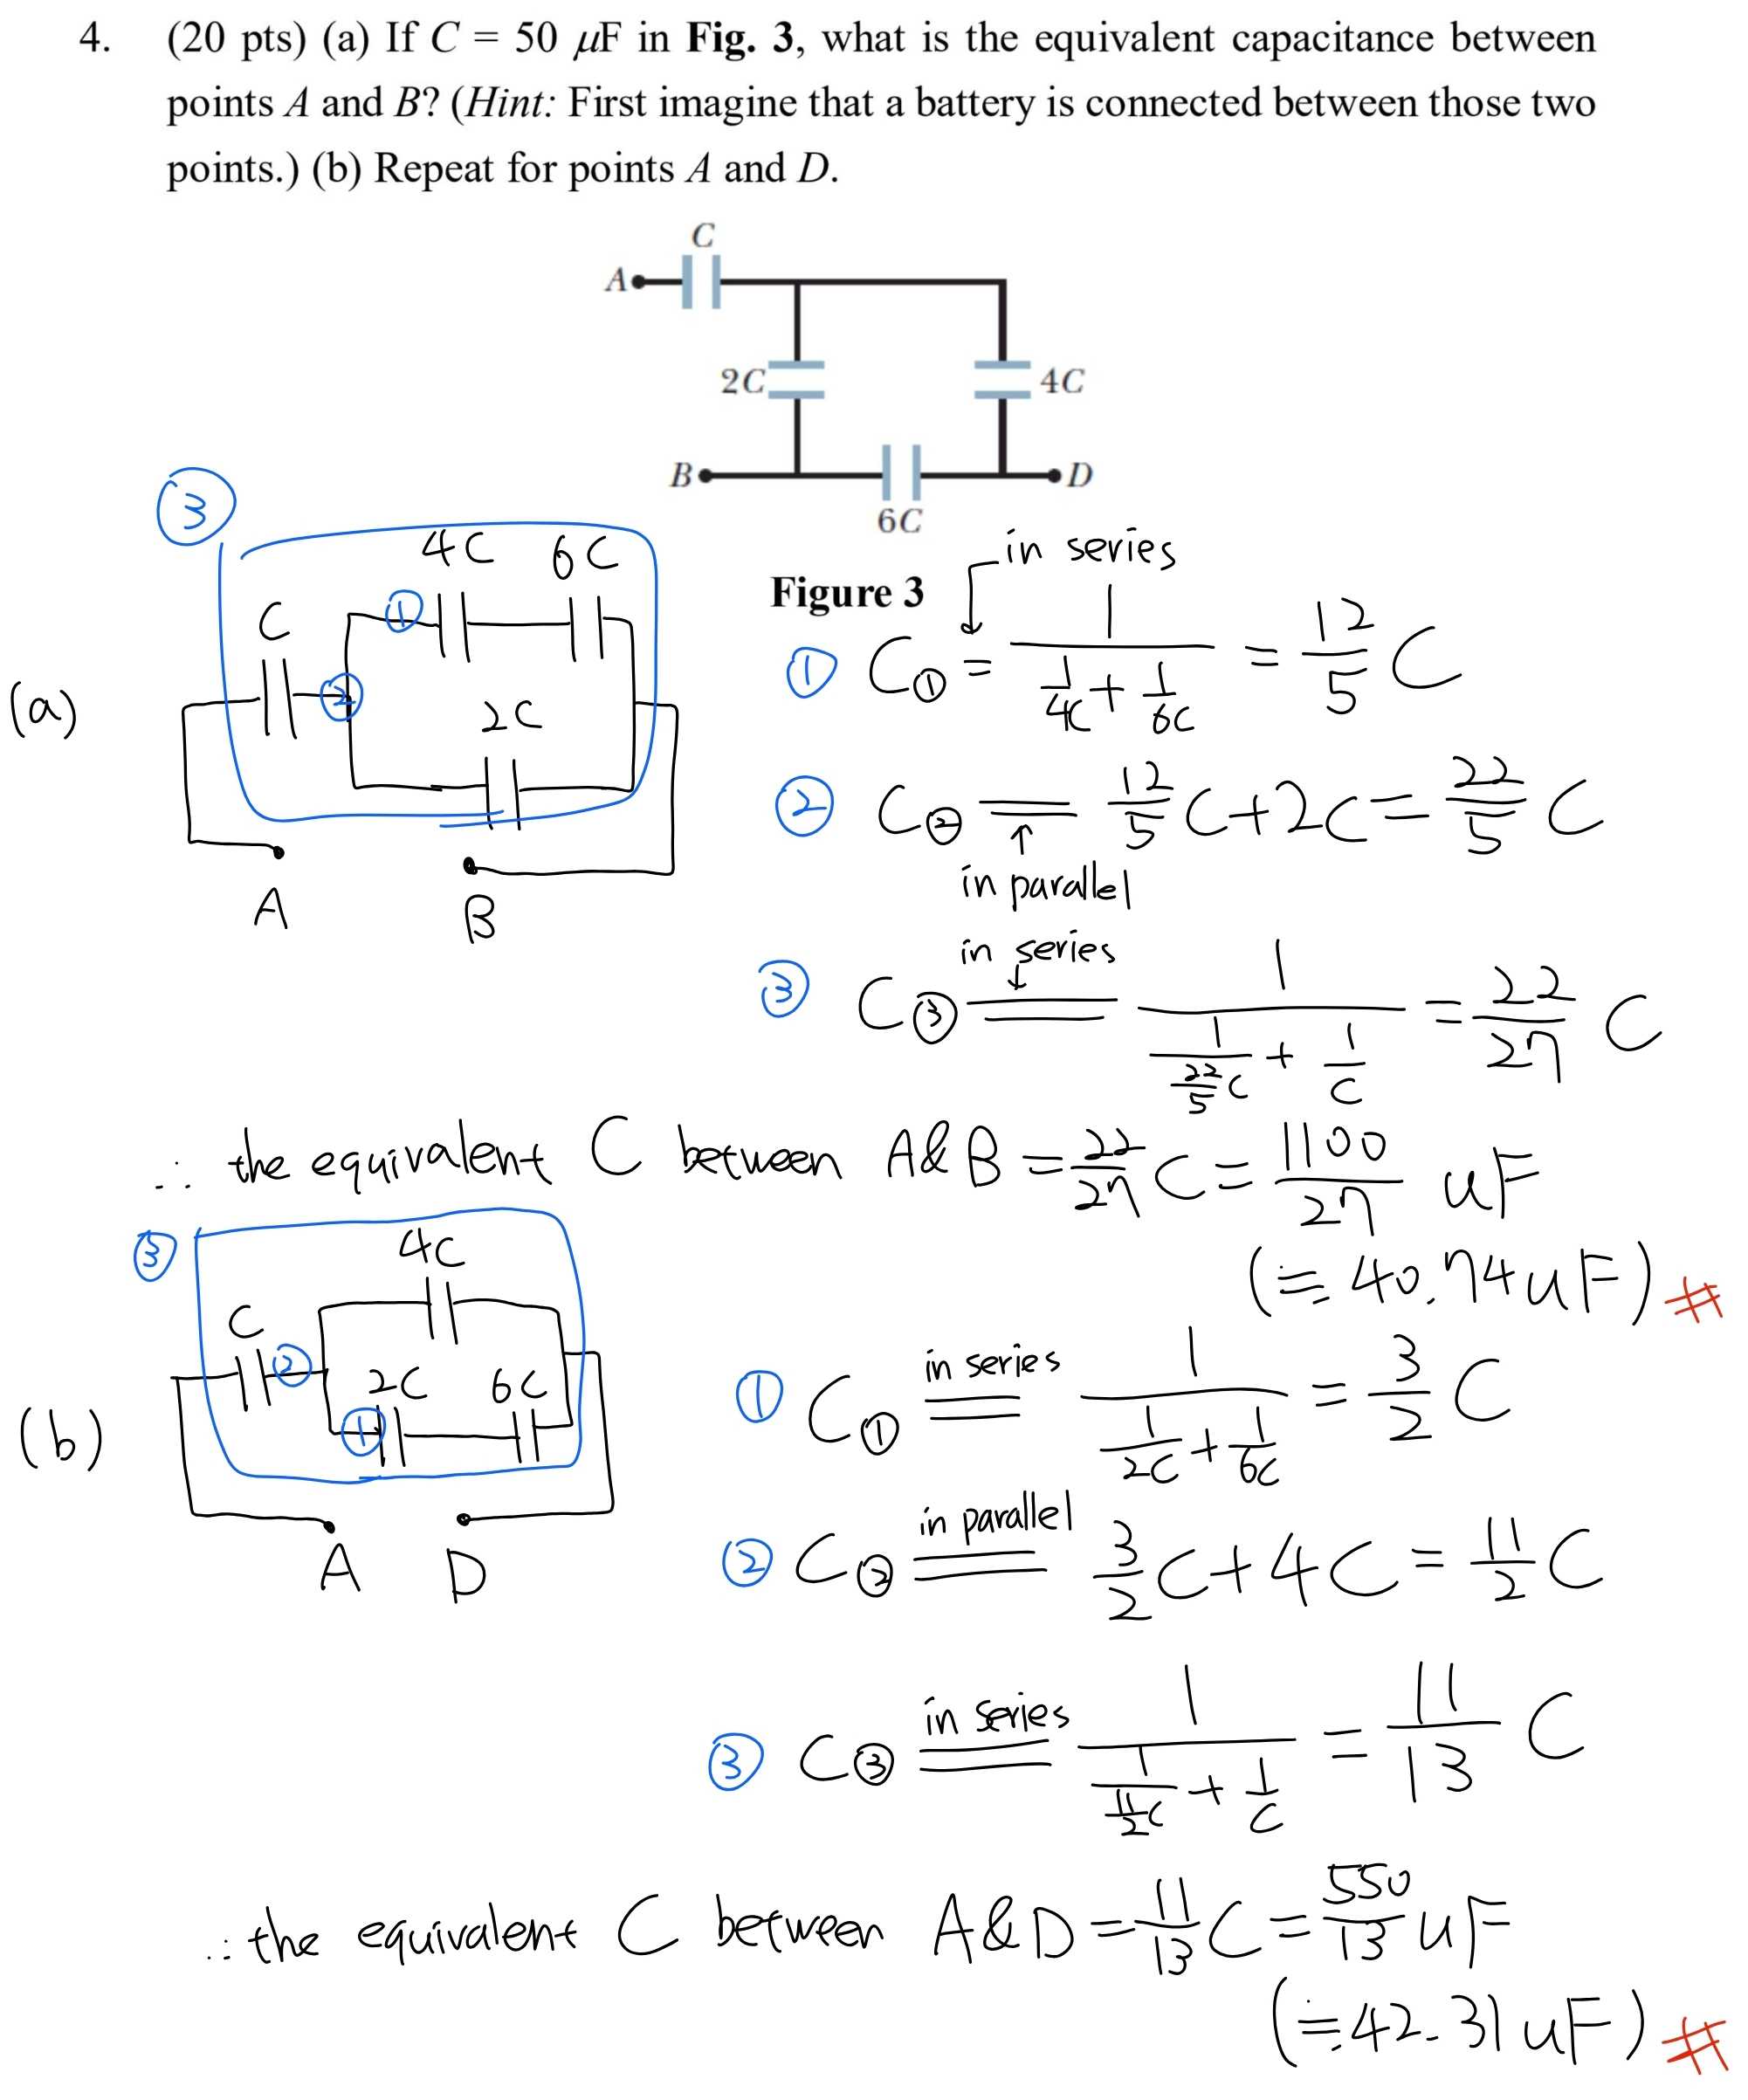 4. (20 pts) (a) If C = 50 μF in Fig. 3, what is the equivalent capacitance between
points A and B? (Hint: First imagine that a battery is connected between those two
points.) (b) Repeat for points A and D.
C
A
2C
4C
B
D
6C
Figure 3
(a)
③
C
① 4C 6C
②
2C
A B
in series
① C① = 1/(1/4C + 1/6C) = 12/5 C
② C② = 12/5 C + 2C = 22/5 C
in parallel
in series
③ C③ = 1/(1/(22/5 C) + 1/C) = 22/27 C
∴ the equivalent C between A&B = 22/27 C = 1100/27 uF
(≒ 40.74uF) #
(b)
③
4C
C
② 2C 6C
①
A D
① C① in series = 1/(1/2C + 1/6C) = 3/2 C
② C② in parallel = 3/2 C + 4C = 11/2 C
③ C③ in series = 1/(1/(11/2 C) + 1/C) = 11/13 C
∴ the equivalent C between A&D = 11/13 C = 550/13 uF
(≒ 42.31 uF) #